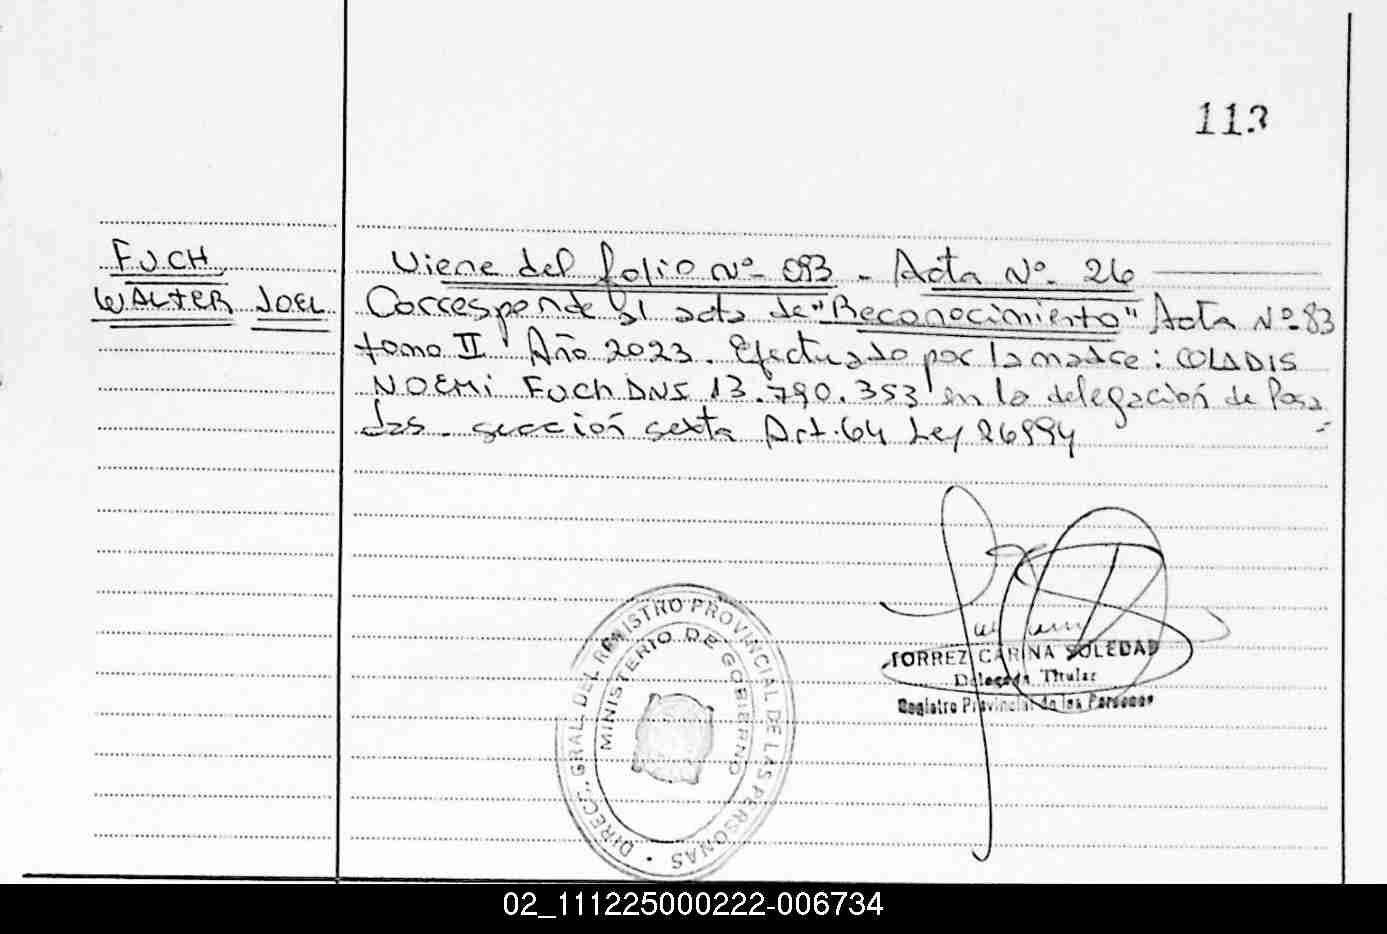 113
FUCH
WALTER JOEL
Viene del folio Nº- 093 - Acta Nº- 26
Corresponde al acta de "Reconocimiento" Acta Nº-83
tomo II Año 2023. Efectuado por la madre: COLADIS
NOEMI FUCH DNI 13.790.353 en la delegación de Posa
das - sección sexta Art. 64 Ley 26994
TORREZ CARINA SOLEDAD
Delegada Titular
Registro Provincial de las Personas
DIRECC. GRAL. DEL REGISTRO PROVINCIAL DE LAS PERSONAS
MINISTERIO DE GOBIERNO
02_111225000222-006734